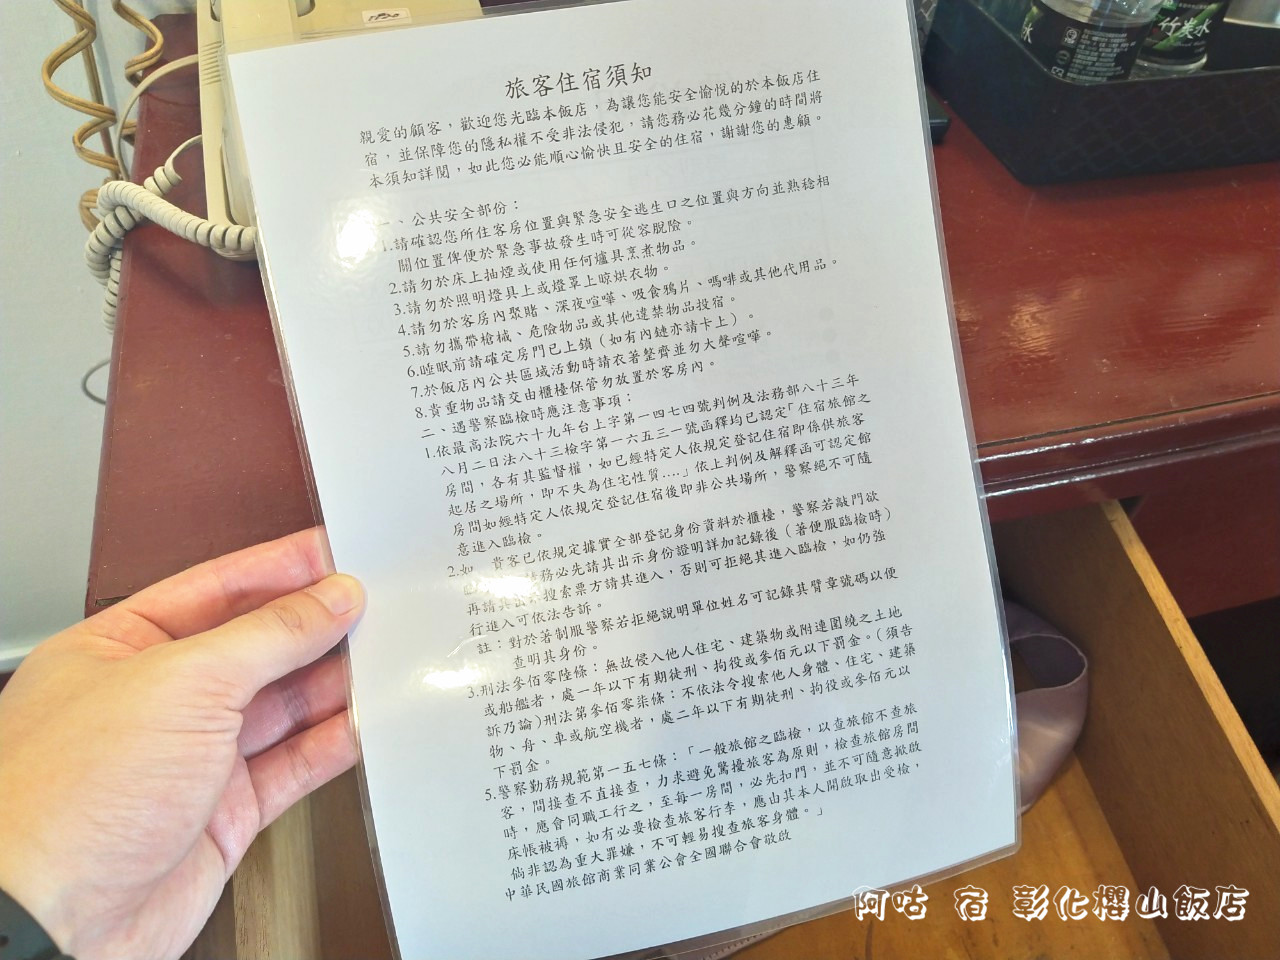 旅客住宿須知
親愛的顧客，歡迎您光臨本飯店，為讓您能安全愉悅的於本飯店住
宿，並保障您的隱私權不受非法侵犯，請您務必花幾分鐘的時間將
本須知詳閱，如此您必能順心愉快且安全的住宿，謝謝您的惠顧。
一、公共安全部份：
1.請確認您所住客房位置與緊急安全逃生口之位置與方向並熟稔相
關位置俾便於緊急事故發生時可從容脫險。
2.請勿於床上抽煙或使用任何爐具烹煮物品。
3.請勿於照明燈具上或燈罩上晾烘衣物。
4.請勿於客房內聚賭、深夜喧嘩、吸食鴉片、嗎啡或其他代用品。
5.請勿攜帶槍械、危險物品或其他違禁物品投宿。
6.睡眠前請確定房門已上鎖（如有內鏈亦請卡上）。
7.於飯店內公共區域活動時請衣著整齊並勿大聲喧嘩。
8.貴重物品請交由櫃檯保管勿放置於客房內。
二、遇警察臨檢時應注意事項：
1.依最高法院六十九年台上字第一四七四號判例及法務部八十三年
八月二日法八十三檢字第一六五三一號函釋均已認定「住宿旅館之
房間，各有其監督權，如已經特定人依規定登記住宿即係供旅客
起居之場所，即不失為住宅性質....」依上判例及解釋函可認定館
房間如經特定人依規定登記住宿後即非公共場所，警察絕不可隨
意進入臨檢。
2.如 貴客已依規定據實全部登記身份資料於櫃檯，警察若敲門欲
請務必先請其出示身份證明詳加記錄後（著便服臨檢時）
再請其出示搜索票方請其進入，否則可拒絕其進入臨檢，如仍強
行進入可依法告訴。
註：對於著制服警察若拒絕說明單位姓名可記錄其臂章號碼以便
查明其身份。
3.刑法參佰零陸條：無故侵入他人住宅、建築物或附連圍繞之土地
或船艦者，處一年以下有期徒刑、拘役或參佰元以下罰金。(須告
訴乃論)刑法第參佰零柒條：不依法令搜索他人身體、住宅、建築
物、舟、車或航空機者，處二年以下有期徒刑、拘役或參佰元以
下罰金。
5.警察勤務規範第一五七條：「一般旅館之臨檢，以查旅館不查旅
客，間接查不直接查，力求避免驚擾旅客為原則，檢查旅館房間
時，應會同職工行之，至每一房間，必先扣門，並不可隨意掀啟
床帳被褥，如有必要檢查旅客行李，應由其本人開啟取出受檢，
倘非認為重大罪嫌，不可輕易搜查旅客身體。」
中華民國旅館商業同業公會全國聯合會敬啟
竹炭水
阿咕 宿 彰化櫻山飯店